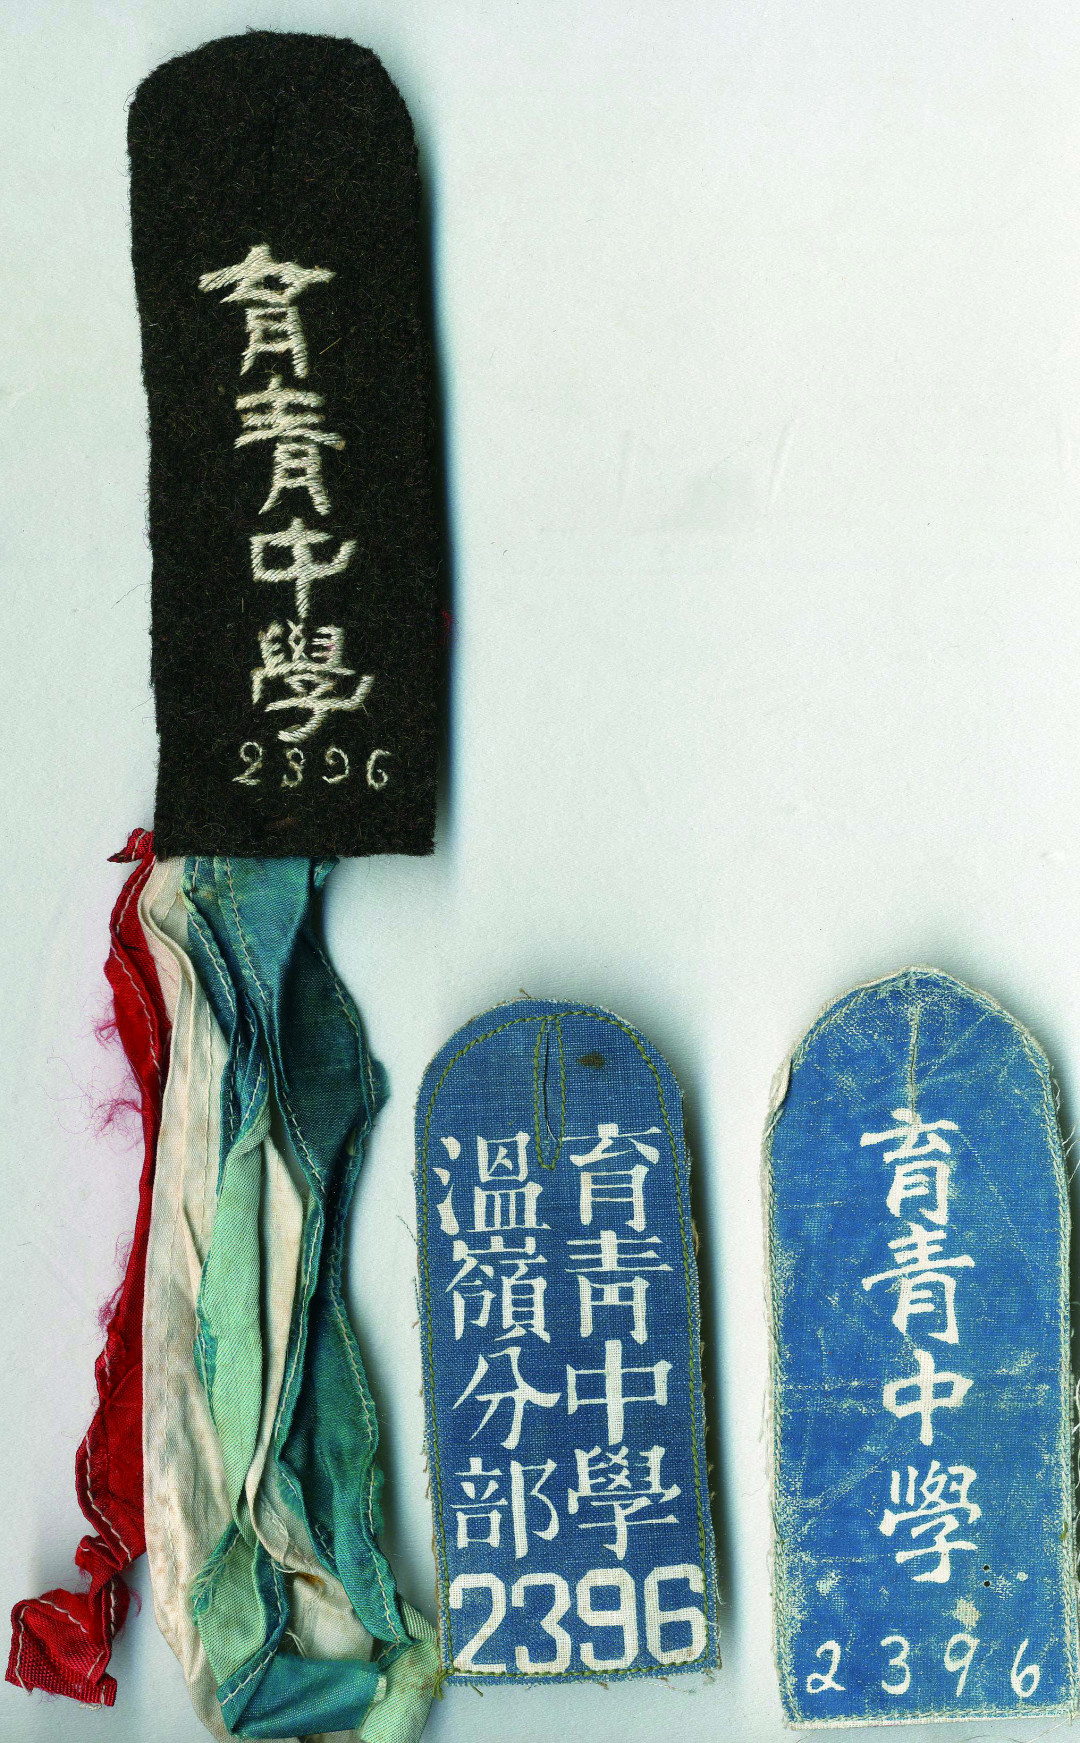 育青中學
2396
育青中學
溫嶺分部
2396
育青中學
2396